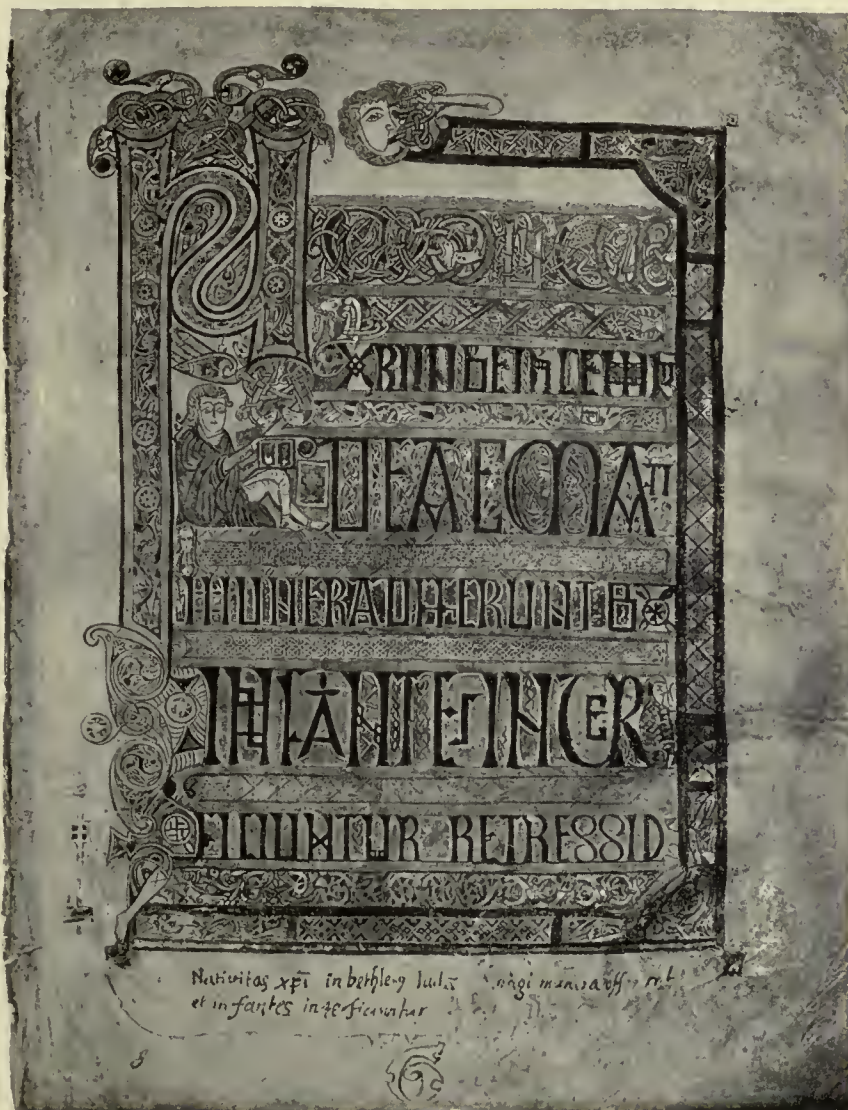 NATIUITAS
XPI IN BETHLEM IU
DEAE MAGI
MUNERA OFFERUNT ET
INFANTES INTER
FICIUNTUR REGRESSIO
Nativitas xp̄i in bethlem Iudæ magi munera offerunt
et infantes interficiuntur